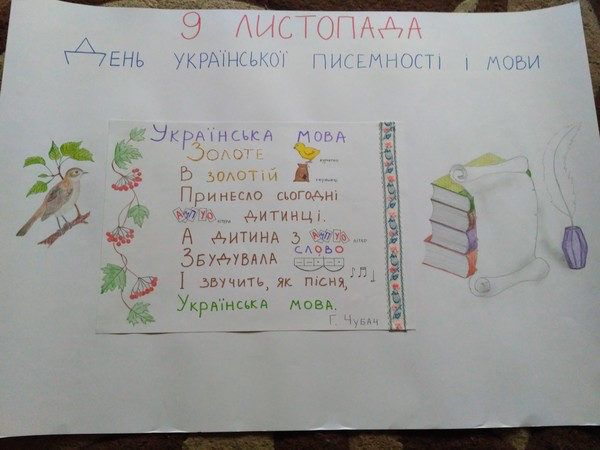 9 ЛИСТОПАДА
ДЕНЬ УКРАЇНСЬКОЇ ПИСЕМНОСТІ І МОВИ
УКРАЇНСЬКА МОВА
ЗОЛОТЕ
В ЗОЛОТІЙ
ПРИНЕСЛО СЬОГОДНІ
ДИТИНЦІ.
А ДИТИНА З
СЛОВО
ЗБУДУВАЛА
І ЗВУЧИТЬ, ЯК ПІСНЯ,
УКРАЇНСЬКА МОВА.
Г. ЧУБАЧ